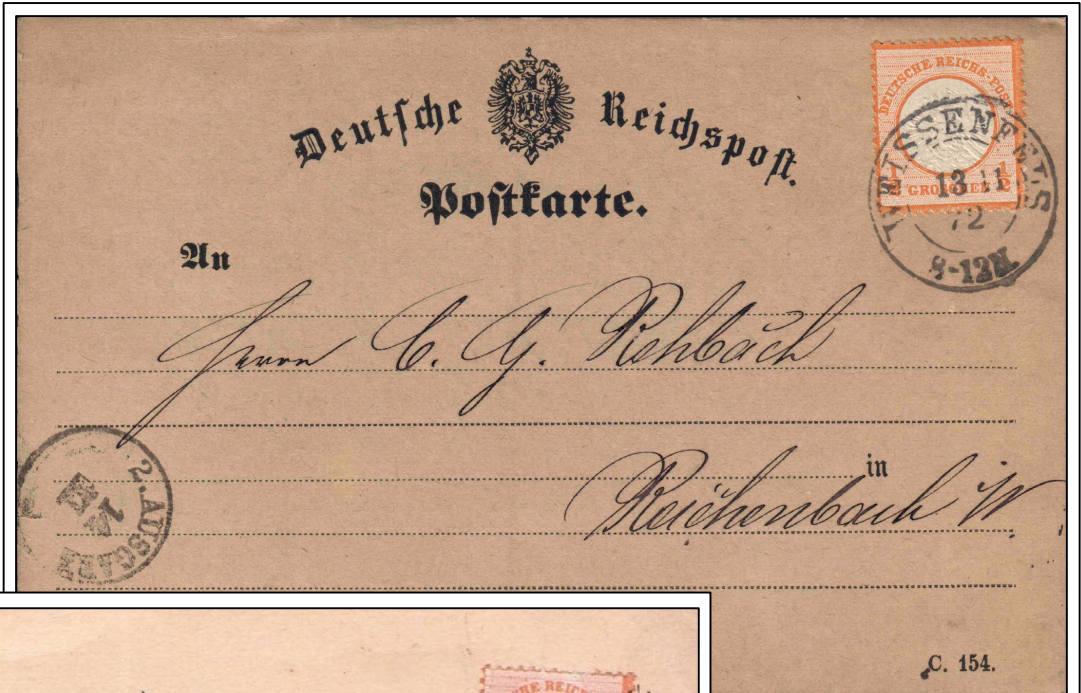 Deutſche Reichspoſt.
Poſtkarte.
DEUTSCHE REICHS-POST
1/2 GROSCHEN 1/2
WEISSENFELS
13 11
72
8-12N.
An
Herrn C. G. Rehbach
in
Reichenbach i/V
2. AUSGABE
14
XI
C. 154.
HE REIC